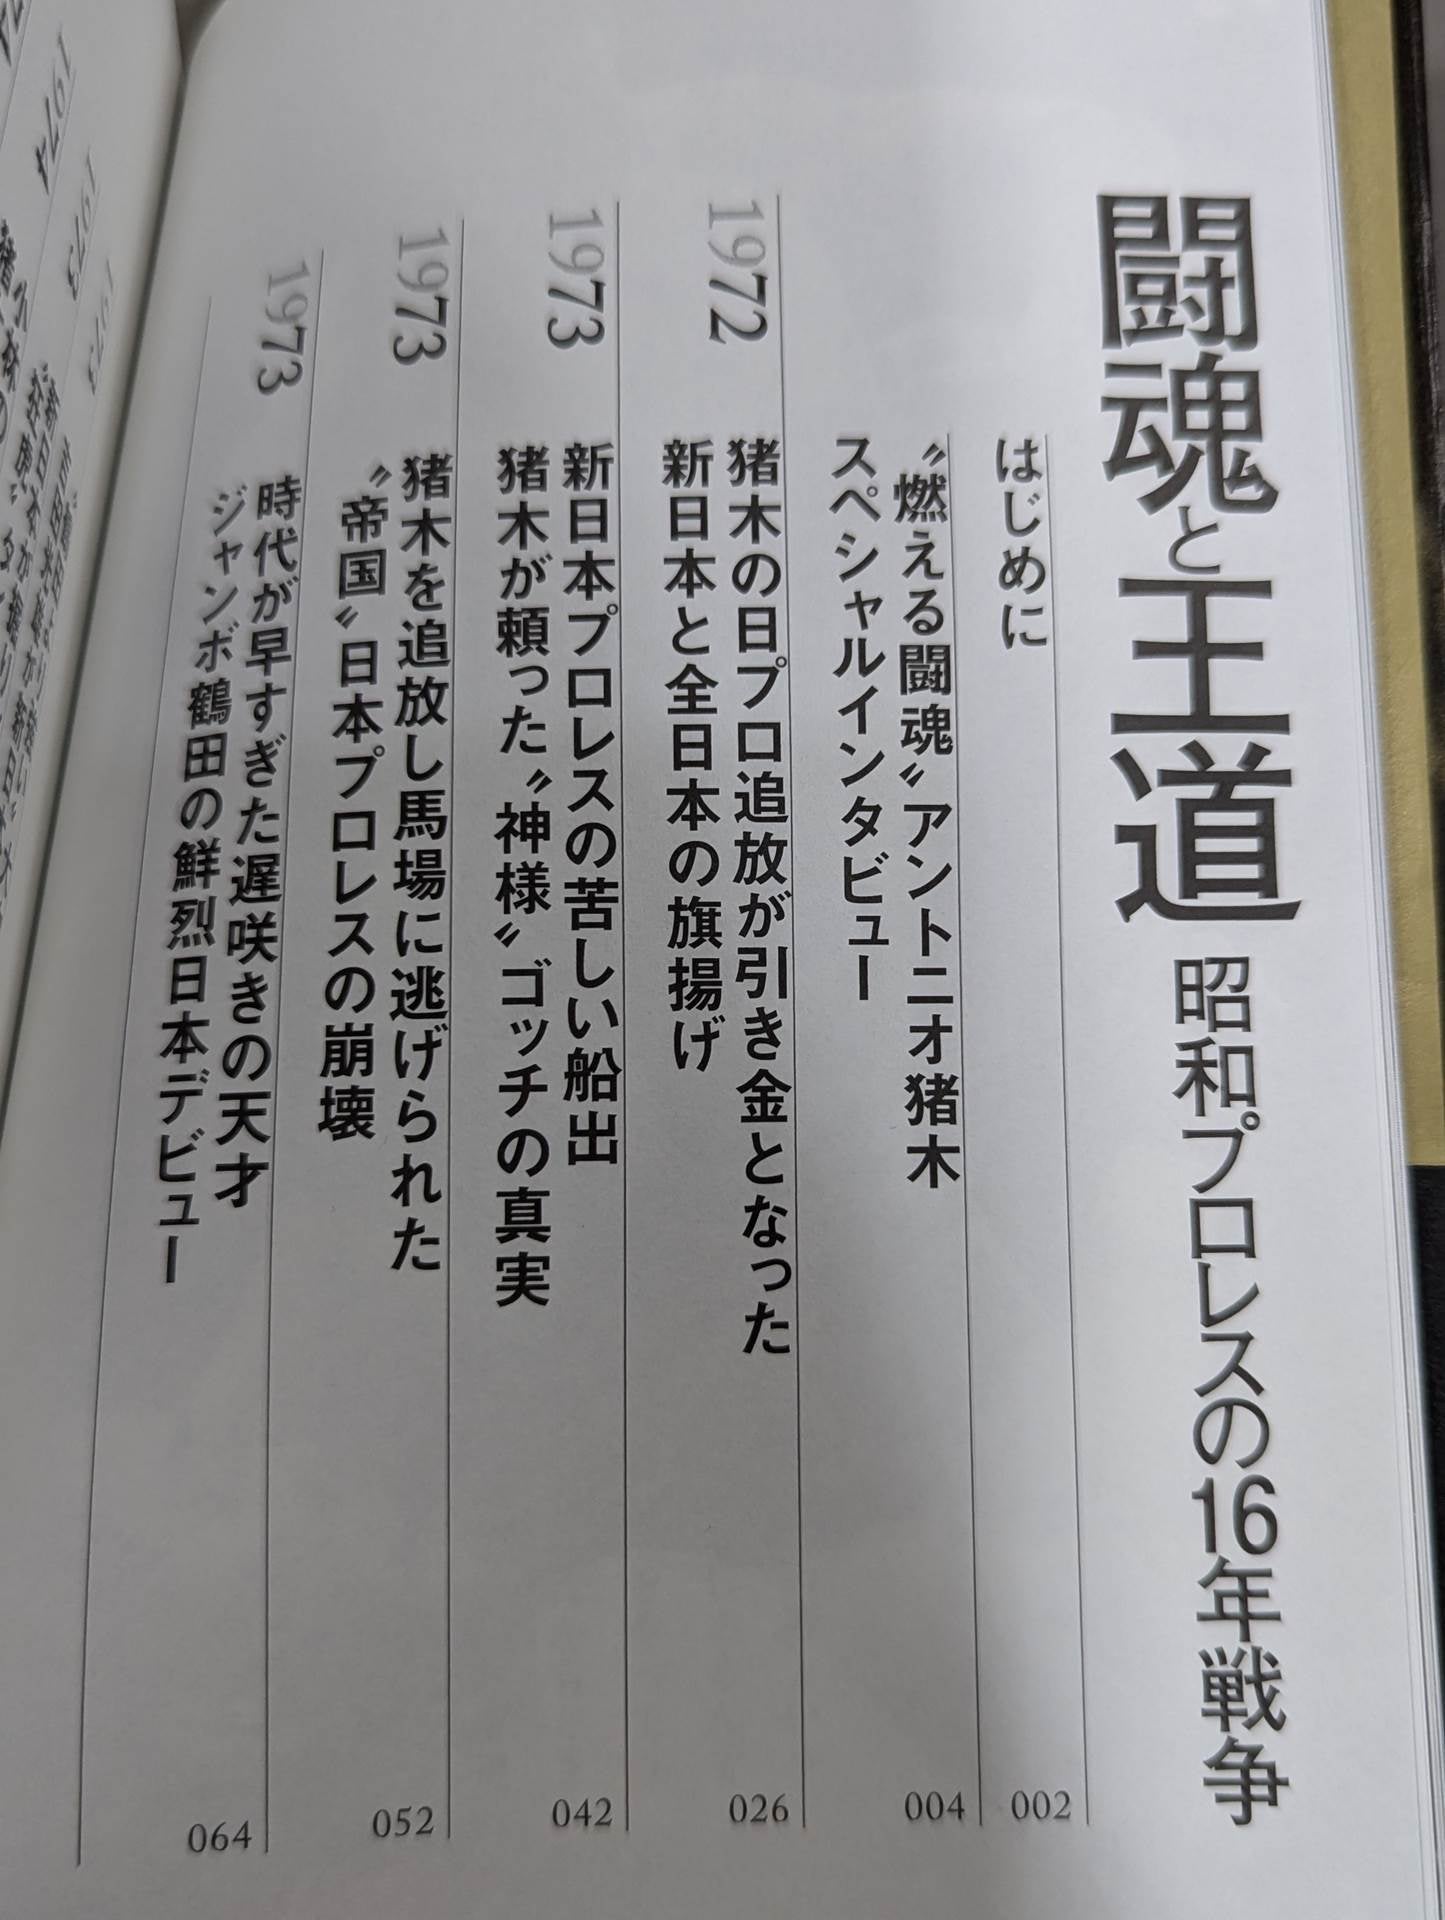 闘魂と王道 昭和プロレスの16年戦争
はじめに
002
〝燃える闘魂〟アントニオ猪木
スペシャルインタビュー
004
1972
猪木の日プロ追放が引き金となった
新日本と全日本の旗揚げ
026
1973
新日本プロレスの苦しい船出
猪木が頼った〝神様〟ゴッチの真実
042
1973
猪木を追放し馬場に逃げられた
〝帝国〟日本プロレスの崩壊
052
1973
時代が早すぎた遅咲きの天才
ジャンボ鶴田の鮮烈日本デビュー
064
1973
1973
1974